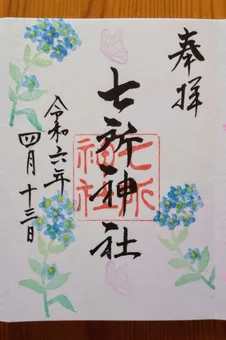 奉拝
七所神社
七所神社
令和六年
四月十三日